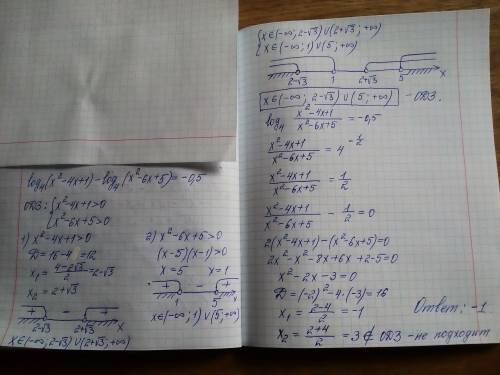 log₄(x²-4x+1)-log₄(x²-6x+5)=-0,5
ОДЗ: { x²-4x+1>0
{ x²-6x+5>0
1) x²-4x+1>0
D=16-4=12
x₁=(4-2√3)/2=2-√3
x₂=2+√3
+ - +
2-√3 2+√3 x
x∈(-∞; 2-√3)∪(2+√3; +∞)
2) x²-6x+5>0
(x-5)(x-1)>0
x=5 x=1
+ - +
1 5 x
x∈(-∞; 1)∪(5; +∞)
{ x∈(-∞; 2-√3)∪(2+√3; +∞)
{ x∈(-∞; 1)∪(5; +∞)
2-√3 1 2+√3 5 x
x∈(-∞; 2-√3)∪(5; +∞) - ОДЗ.
log₄ (x²-4x+1)/(x²-6x+5) = -0,5
(x²-4x+1)/(x²-6x+5) = 4^(-1/2)
(x²-4x+1)/(x²-6x+5) = 1/2
(x²-4x+1)/(x²-6x+5) - 1/2 = 0
2(x²-4x+1)-(x²-6x+5)=0
2x²-x²-8x+6x+2-5=0
x²-2x-3=0
D=(-2)²-4·(-3)=16
x₁=(2-4)/2=-1
x₂=(2+4)/2=3∉ОДЗ - не подходит
Ответ: -1